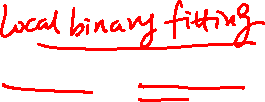 Local binary fitting